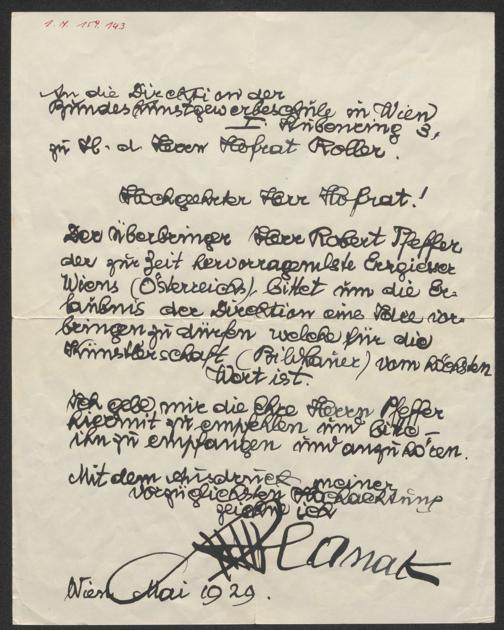 1. N. 159.143
An die Direktion der
Bundeskunstgewerbeschule in Wien
I. Stubenring 3,
zu H. d. Herrn Hofrat Roller.
Hochgeehrter Herr Hofrat!
Der Überbringer Herr Robert Pfeffer
der zur Zeit hervorragendste
Wiens (Österreichs), bittet um die Er-
laubnis der Direktion eine Idee vor-
bringen zu dürfen welche für die
Künstlerschaft (Bildhauer) vom höchsten
Wert ist.
Ich gebe mir die Ehre Herrn Pfeffer
hiermit zu empfehlen und bitte
ihn zu empfangen und anzuhören.
Mit dem Ausdruck meiner
vorzüglichsten Hochachtung
zeichne ich
Hanak
Wien Mai 1929.